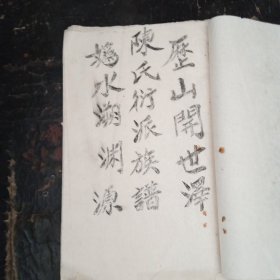 歷山開世澤
陳氏衍派族譜
媯水溯淵源